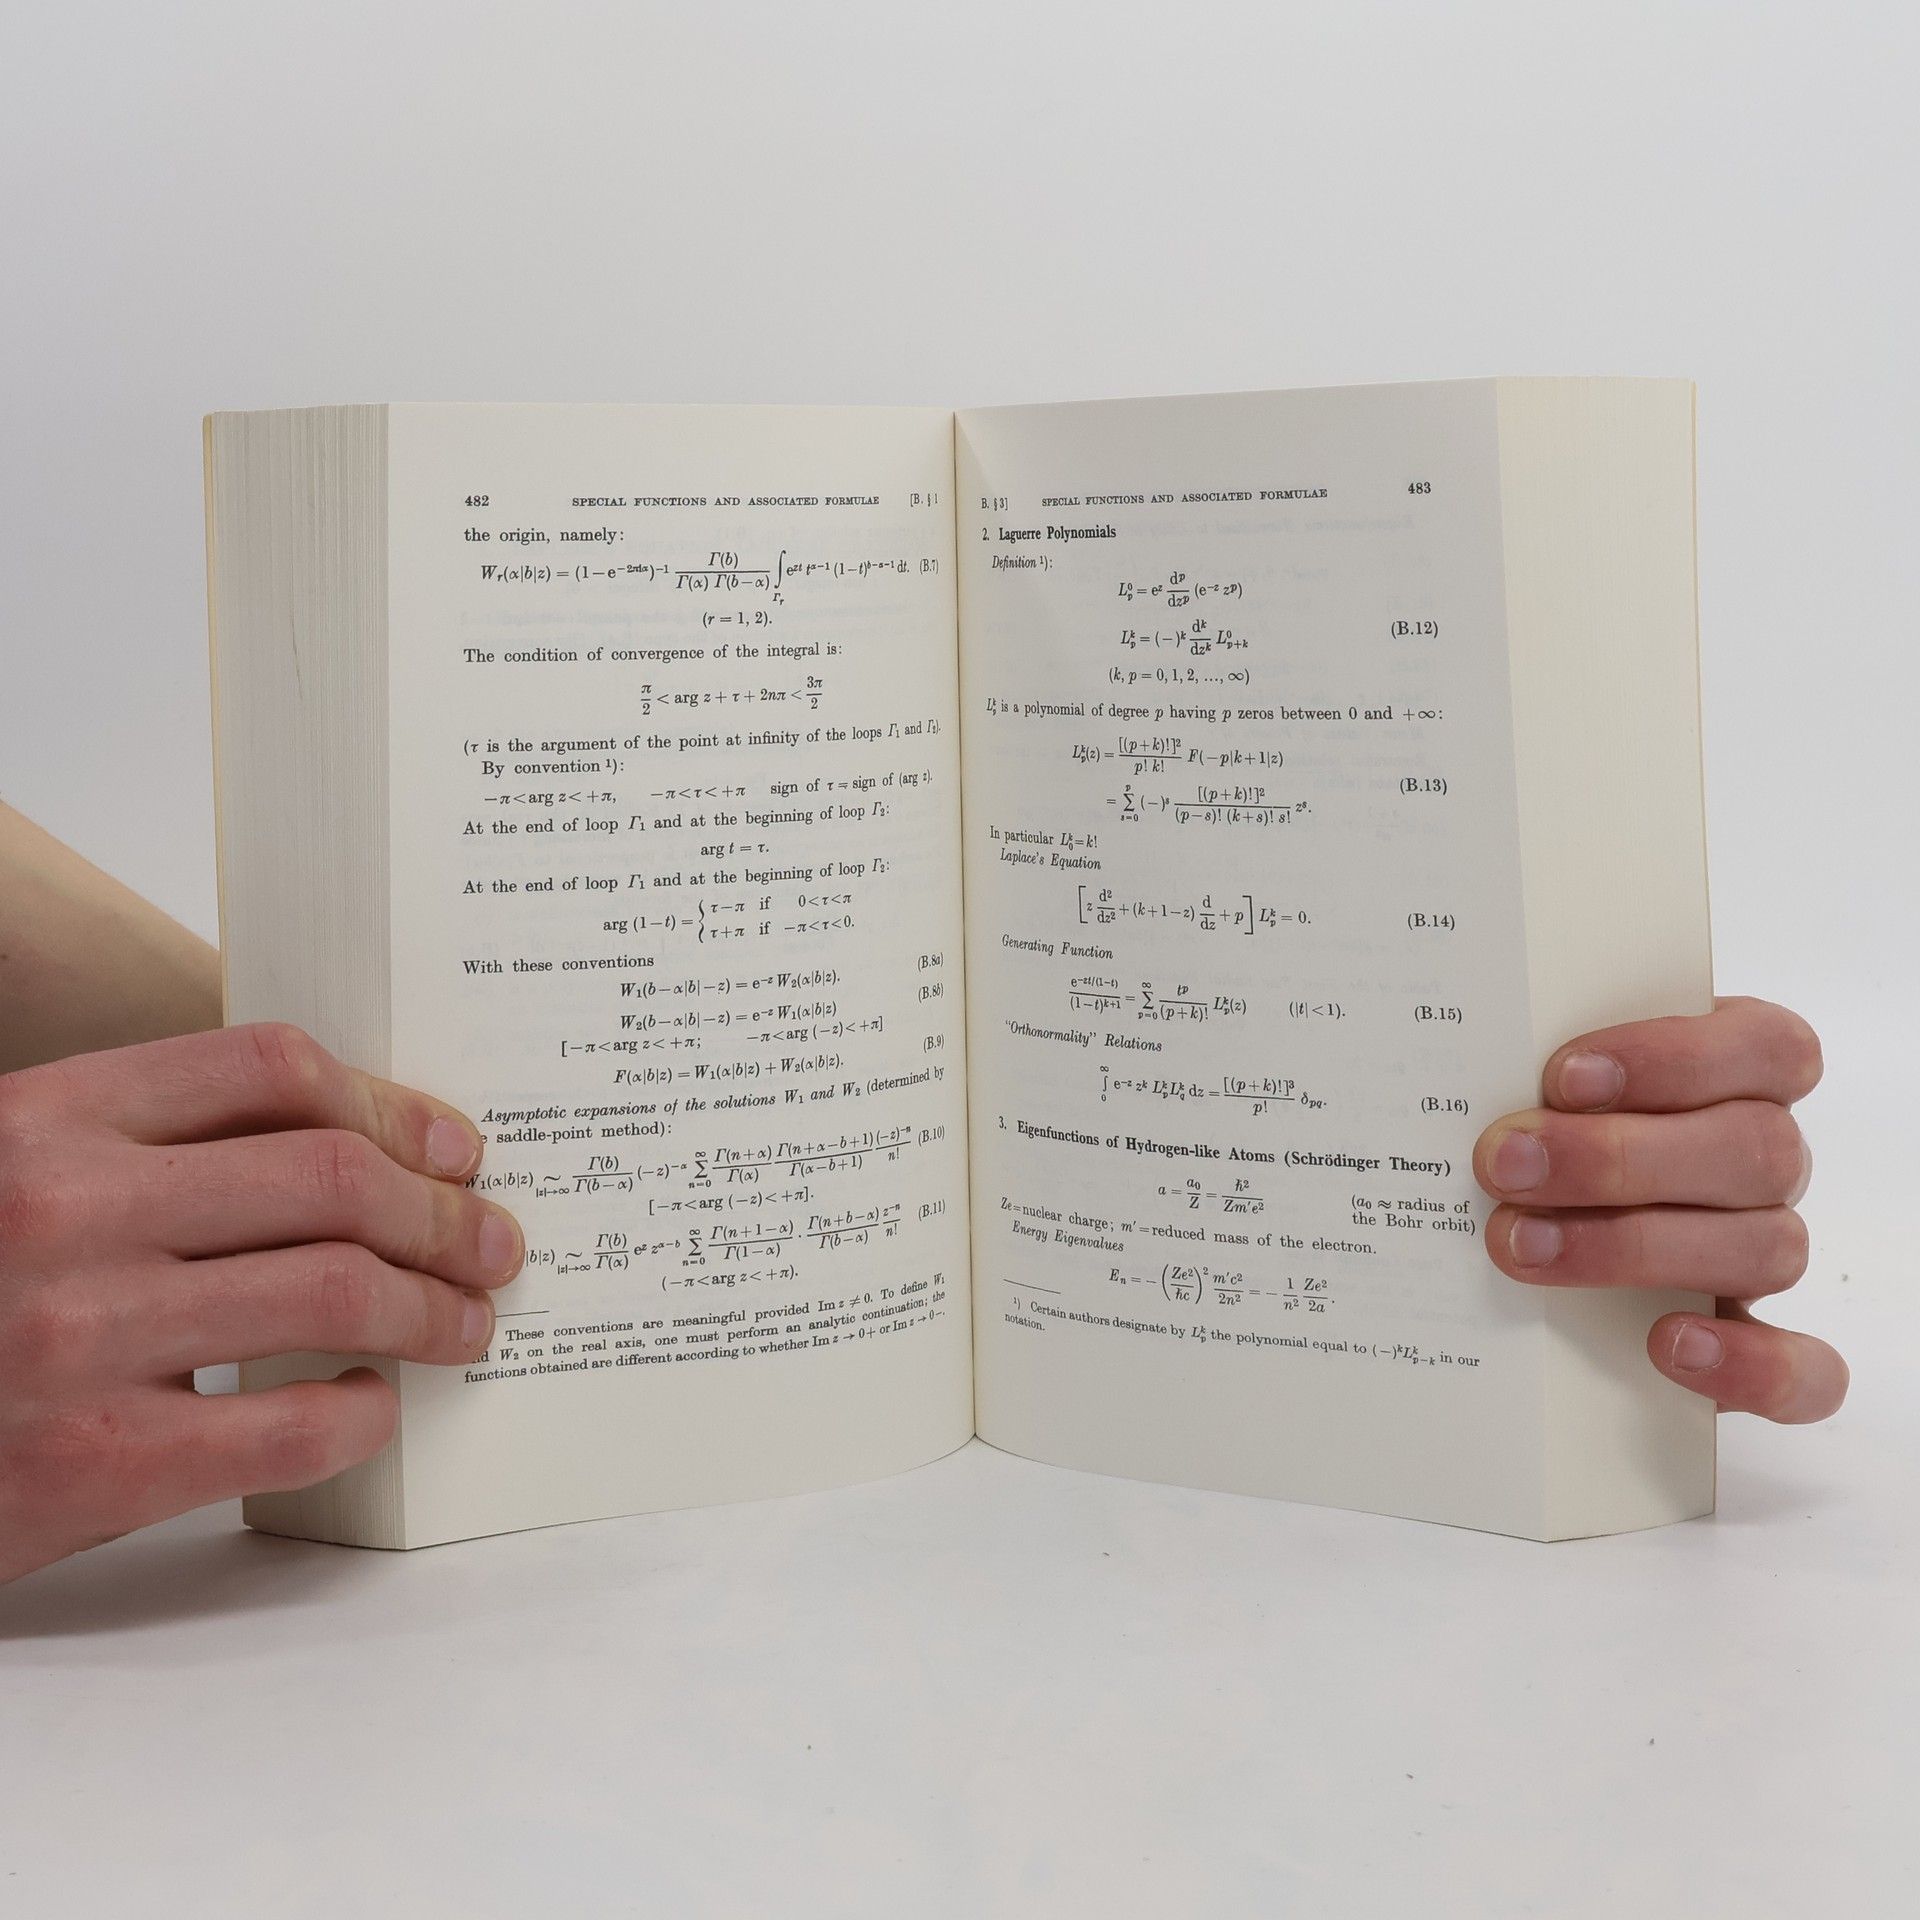 482 SPECIAL FUNCTIONS AND ASSOCIATED FORMULAE [B. § 1
the origin, namely:
W_r(α|b|z) = (1−e^{−2πiα})^{−1} Γ(b)/(Γ(α) Γ(b−α)) ∫_{Γ_r} e^{zt} t^{α−1} (1−t)^{b−α−1} dt. (B.7)
(r = 1, 2).
The condition of convergence of the integral is:
π/2 < arg z + τ + 2nπ < 3π/2
(τ is the argument of the point at infinity of the loops Γ₁ and Γ₂).
By convention ¹):
−π<arg z<+π, −π<τ<+π sign of τ = sign of (arg z).
At the end of loop Γ₁ and at the beginning of loop Γ₂:
arg t = τ.
At the end of loop Γ₁ and at the beginning of loop Γ₂:
arg (1−t) = { τ−π if 0<τ<π
τ+π if −π<τ<0.
With these conventions
W₁(b−α|b|−z) = e^{−z} W₂(α|b|z). (B.8a)
W₂(b−α|b|−z) = e^{−z} W₁(α|b|z) (B.8b)
[−π<arg z<+π; −π<arg (−z)<+π]
F(α|b|z) = W₁(α|b|z) + W₂(α|b|z). (B.9)
Asymptotic expansions of the solutions W₁ and W₂ (determined by
saddle-point method):
W₁(α|b|z) ~_{|z|→∞} Γ(b)/Γ(b−α) (−z)^{−α} ∑_{n=0}^{∞} Γ(n+α)/Γ(α) Γ(n+α−b+1)/Γ(α−b+1) (−z)^{−n}/n! (B.10)
[−π<arg (−z)<+π].
|b|z) ~_{|z|→∞} Γ(b)/Γ(α) e^z z^{α−b} ∑_{n=0}^{∞} Γ(n+1−α)/Γ(1−α) · Γ(n+b−α)/Γ(b−α) z^{−n}/n! (B.11)
(−π<arg z<+π).
These conventions are meaningful provided Im z ≠ 0. To define W₁
W₂ on the real axis, one must perform an analytic continuation; the
functions obtained are different according to whether Im z → 0+ or Im z → 0−.
B. § 3] SPECIAL FUNCTIONS AND ASSOCIATED FORMULAE 483
2. Laguerre Polynomials
Definition ¹):
L_p^0 = e^z d^p/dz^p (e^{−z} z^p)
L_p^k = (−)^k d^k/dz^k L_{p+k}^0 (B.12)
(k, p = 0, 1, 2, ..., ∞)
L_p^k is a polynomial of degree p having p zeros between 0 and +∞:
L_p^k(z) = [(p+k)!]²/(p! k!) F(−p|k+1|z)
= ∑_{s=0}^{p} (−)^s [(p+k)!]²/((p−s)! (k+s)! s!) z^s. (B.13)
In particular L_0^k = k!
Laplace's Equation
[z d²/dz² + (k+1−z) d/dz + p] L_p^k = 0. (B.14)
Generating Function
e^{−zt/(1−t)}/(1−t)^{k+1} = ∑_{p=0}^{∞} t^p/(p+k)! L_p^k(z) (|t| < 1). (B.15)
"Orthonormality" Relations
∫_0^∞ e^{−z} z^k L_p^k L_q^k dz = [(p+k)!]³/p! δ_{pq}. (B.16)
3. Eigenfunctions of Hydrogen-like Atoms (Schrödinger Theory)
a = a₀/Z = ħ²/(Zm′e²) (a₀ ≈ radius of
the Bohr orbit)
Ze = nuclear charge; m′ = reduced mass of the electron.
Energy Eigenvalues
E_n = −(Ze²/ħc)² m′c²/2n² = − 1/n² Ze²/2a.
¹) Certain authors designate by L_p^k the polynomial equal to (−)^k L_{p−k}^k in our
notation.